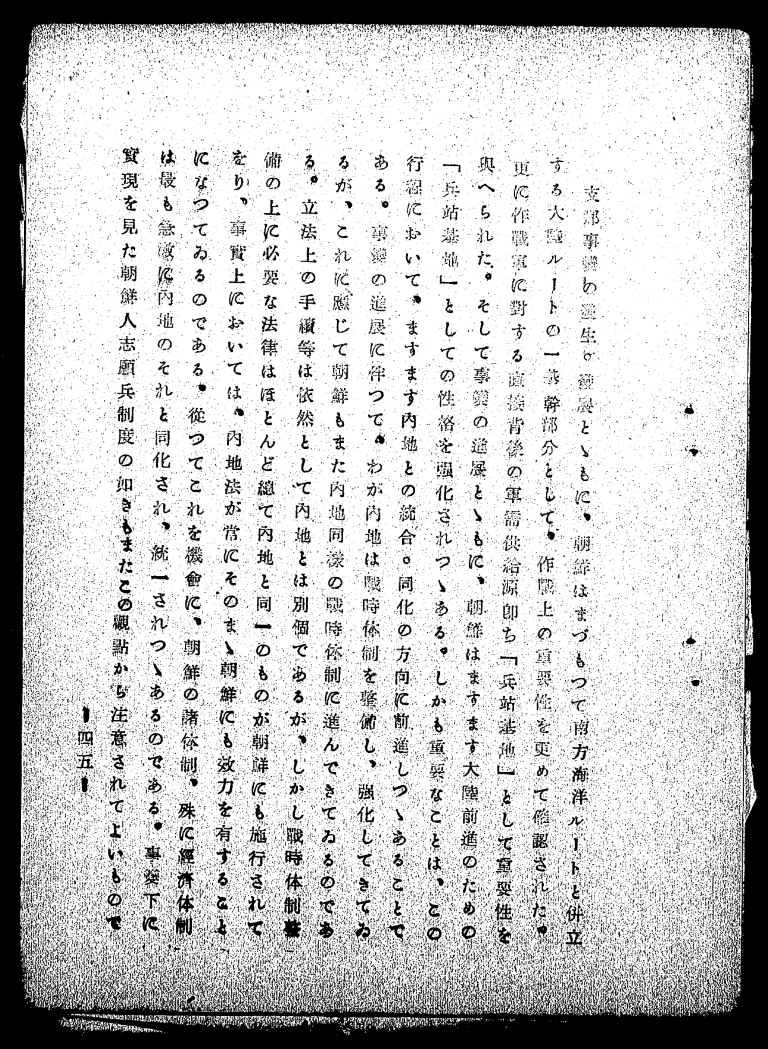 支那事變の發生・發展とゝもに、朝鮮はまづもつて南方海洋ルートと併立
する大陸ルートの一基幹部分として、作戰上の重要性を更めて確認された。
更に作戰軍に對する直接背後の軍需供給源卽ち「兵站基地」として重要性を
與へられた。そして事變の進展とゝもに、朝鮮はますます大陸前進のための
「兵站基地」としての性格を强化されつゝある。しかも重要なことは、この
行程において、ますます內地との統合。同化の方向に前進しつゝあることで
ある。事變の進展に伴つて、わが內地は戰時体制を整備し、强化してきてゐ
るが、これに應じて朝鮮もまた內地同樣の戰時体制に進んできてゐるのであ
る。立法上の手續等は依然として內地とは別個であるが、しかし戰時体制整
備の上に必要な法律はほとんど總て內地と同一のものが朝鮮にも施行されて
をり、事實上においては、內地法が常にそのまゝ朝鮮にも效力を有すること
になつてゐるのである。從つてこれを機會に、朝鮮の諸体制、殊に經濟体制
は最も急激に內地のそれと同化され、統一されつゝあるのである。事變下に
實現を見た朝鮮人志願兵制度の如きもまたこの觀點から注意されてよいもので
四五